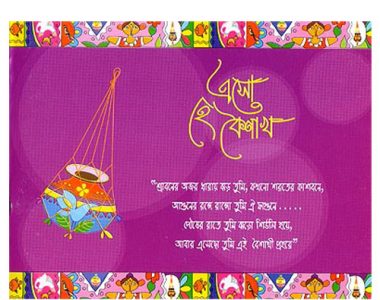 এসো
হে বৈশাখ
"শ্রাবনের অঝর ধারায় ঝড় তুমি, কখনো শরতের কাশবনে,
আগুনের রঙ্গে রাঙ্গো তুমি ঐ ফাগুনে .....
পৌষের রাতে তুমি ঝড়ো শিউলি হয়ে,
আবার এসেছো তুমি এই বৈশাখী প্রহরে"